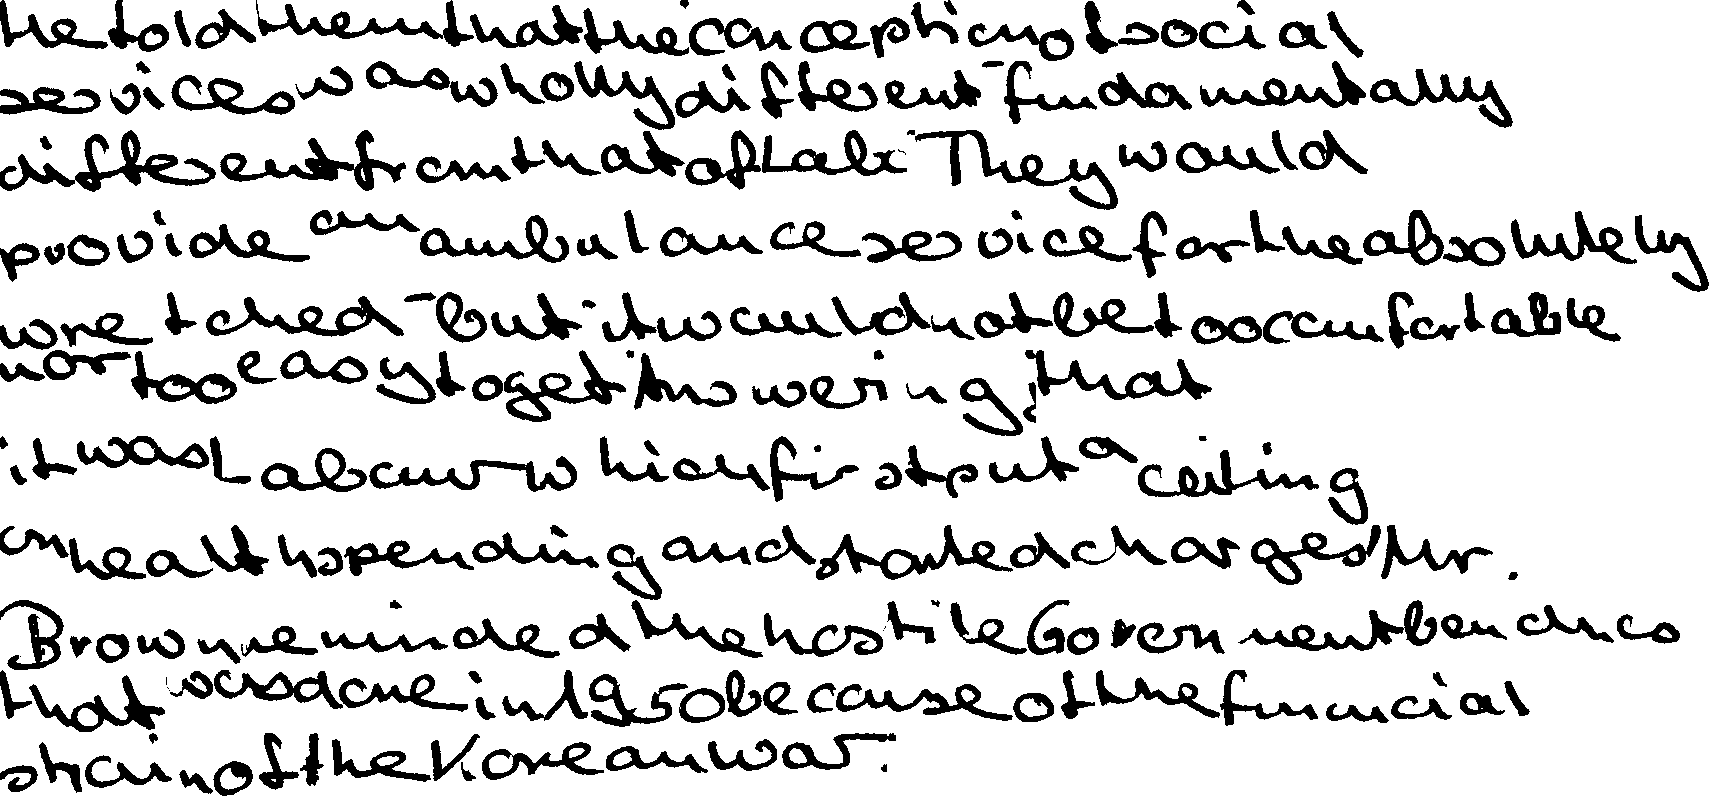 He told them that the conception of social
services was wholly different - fundamentally
different from that of Lab. "They would
provide an ambulance service for the absolutely
wretched - but it would not be too comfortable
nor too easy to get." Answering, that
it was Labour which first put a ceiling
on health spending and started charges, Mr.
Brown reminded the hostile Government benches
that was done in 1950 because of the financial
strain of the Korean war.